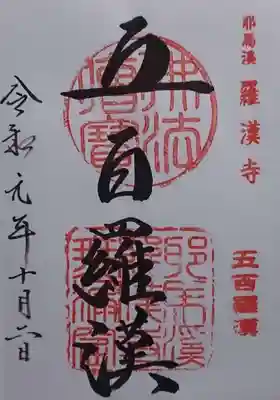 耶馬溪 羅漢寺
五百羅漢
五百羅漢
佛法僧寶
耶馬溪
令和元年十月六日